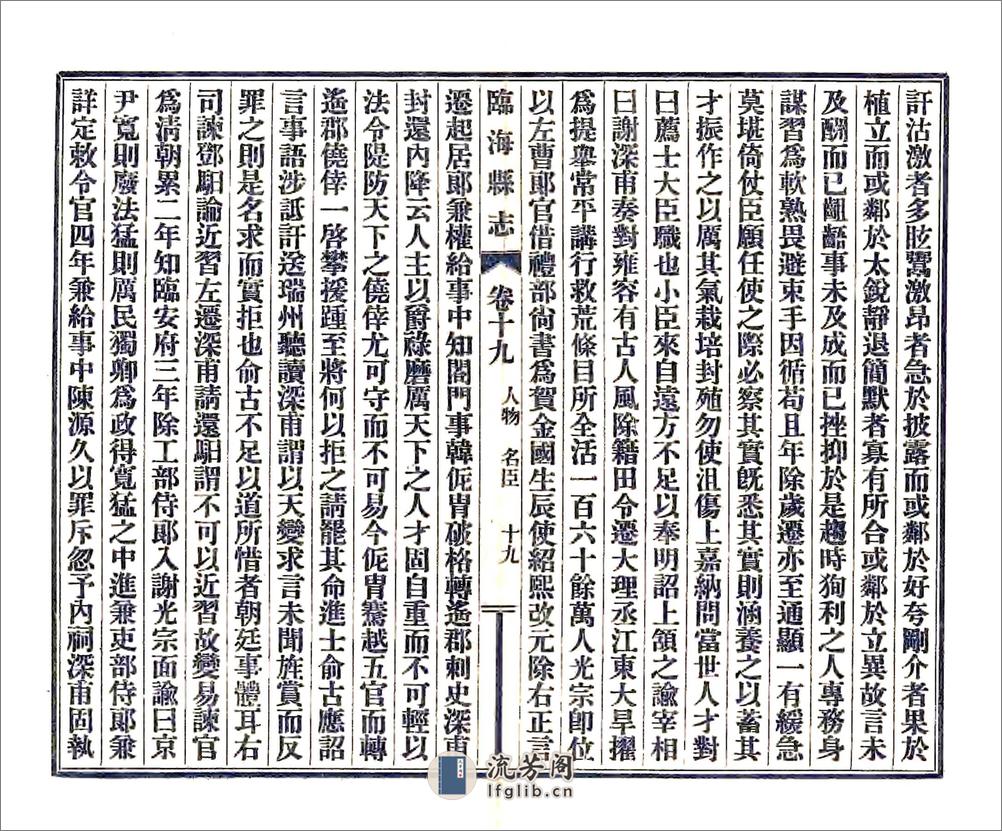 訐沽激者多眩鬻激昂者急於披露而或鄰於好夸剛介者果於
植立而或鄰於太銳靜退簡默者寡有所合或鄰於立異故言未
及酬而已齟齬事未及成而已挫抑於是趨時狥利之人專務身
謀習爲軟熟畏避束手因循苟且年除歲遷亦至通顯一有緩急
莫堪倚仗臣願任使之際必察其實旣悉其實則涵養之以蓄其
才振作之以厲其氣栽培封殖勿使沮傷上嘉納問當世人才對
曰薦士大臣職也小臣來自遠方不足以奉明詔上頷之諭宰相
曰謝深甫奏對雍容有古人風除籍田令遷大理丞江東大旱擢
爲提舉常平講行救荒條目所全活一百六十餘萬人光宗卽位
以左曹郞官借禮部尙書爲賀金國生辰使紹熙改元除右正言
臨海縣志
卷十九
人物 名臣
十九
遷起居郞兼權給事中知閤門事韓侂冑破格轉遙郡刺史深甫
封還內降云人主以爵祿磨厲天下之人才固自重而不可輕以
法令隄防天下之僥倖尤可守而不可易今侂冑驀越五官而轉
遙郡僥倖一啓攀援踵至將何以拒之請罷其命進士俞古應詔
言事語涉詆訐送瑞州聽讀深甫謂以天變求言未聞旌賞而反
罪之則是名求而實拒也俞古不足以道所惜者朝廷事體耳右
司諫鄧馹論近習左遷深甫請還馹謂不可以近習故變易諫官
爲淸朝累二年知臨安府三年除工部侍郞入謝光宗面諭曰京
尹寬則廢法猛則厲民獨卿爲政得寬猛之中進兼吏部侍郞兼
詳定敕令官四年兼給事中陳源久以罪斥忽予內祠深甫固執
流芳閣
lfglib.cn